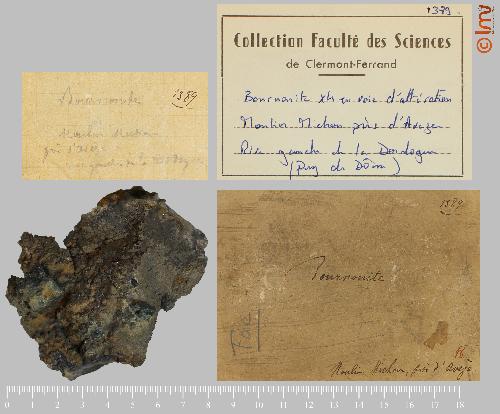 1389
Collection Faculté des Sciences
de Clermont-Ferrand
Bournonite xts en voie d'altération
Moulin Michon près d'Avèze
Rive gauche de la Dordogne
(Puy de Dôme)
Bournonite
1389
Moulin Michon
près d'Avèze
1389
Bournonite
Moulin Michon, près d'Avèze
0 1 2 3 4 5 6 7 8 9 10 11 12 13 14 15 16 17 18
© lmv